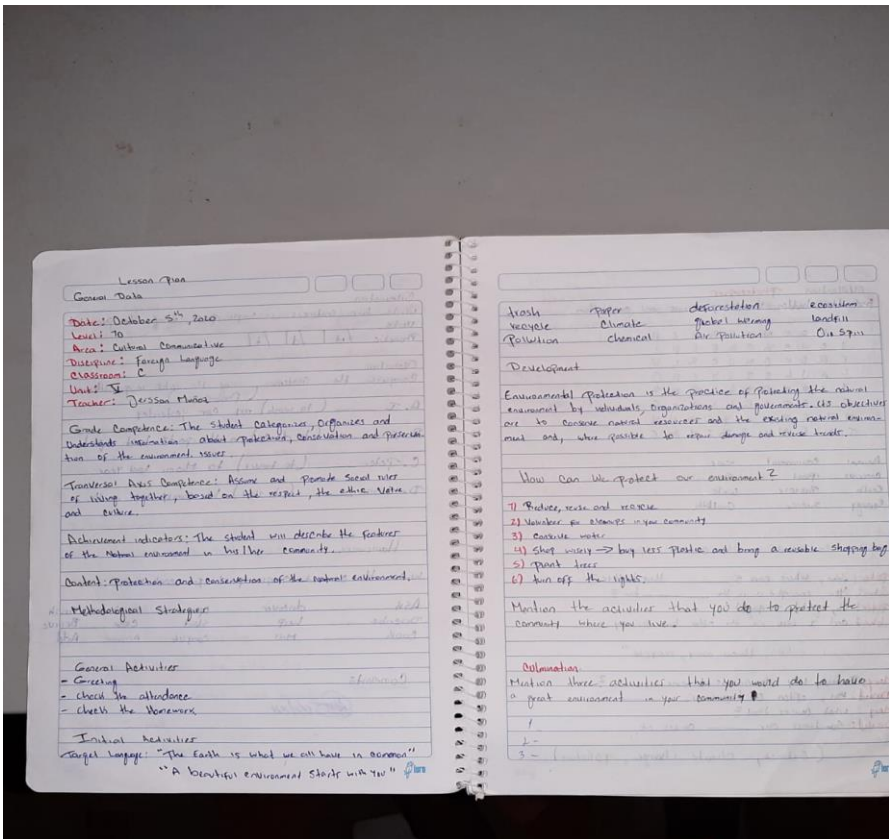 Lesson Plan
General Data
Date: October 5th, 2020
Level: 10
Area: Cultural Communicative
Discipline: Foreign Language
Classroom: C
Unit: V
Teacher: Jersson Muñoz
Grade Competence: The Student Categorizes, Organizes and
Understands information about protection, conservation and preserva
tion of the environment issues.
Tranversal Axis Competence: Assume and Promote Social rules
of living together, based on the respect, the ethic Value
and culture.
Achievement indicators: The student will describe the features
of the Natural environment in his/her community.
Content: protection and conservation of the natural environment.
Methodological Strategies
General Activities
- Greeting
- check the attendance
- check the Homework
Initial Activities
Target Language: "The Earth is what we all have in common"
"A beautiful environment starts with you"
trash paper deforestation ecosystem
recycle Climate global warming landfill
Pollution chemical Air Pollution Oil Spill
Development
Environmental Protection is the practice of Protecting the natural
enviroment by individuals, organizations and governments. its objectives
are to conserve natural resources and the existing natural environ-
ment and, where possible to repair damage and reverse trends.
How can we protect our environment?
1) Reduce, reuse and recycle
2) Volunteer for cleanups in your community
3) conserve water
4) shop wisely → buy less plastic and bring a reusable shopping bag
5) plant trees
6) turn off the lights.
Mention the activities that you do to protect the
community where you live.
Culmination
Mention three activities that you would do to have
a great environment in your community
1
2-
3-